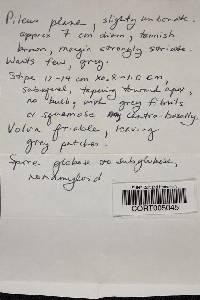 Pileus plane, slightly umbonate.
approx 7 cm diam, tannish
brown, margin strongly striate.
Warts few, grey.
Stipe 12-14 cm x 0.8-1.5 cm,
subequal, tapering toward apex,
no bulb, with grey fibrils
or squamose centro-basally.
Volva friable, leaving
grey patches.
Spores globose to subglobose,
nonamyloid
CORT005045